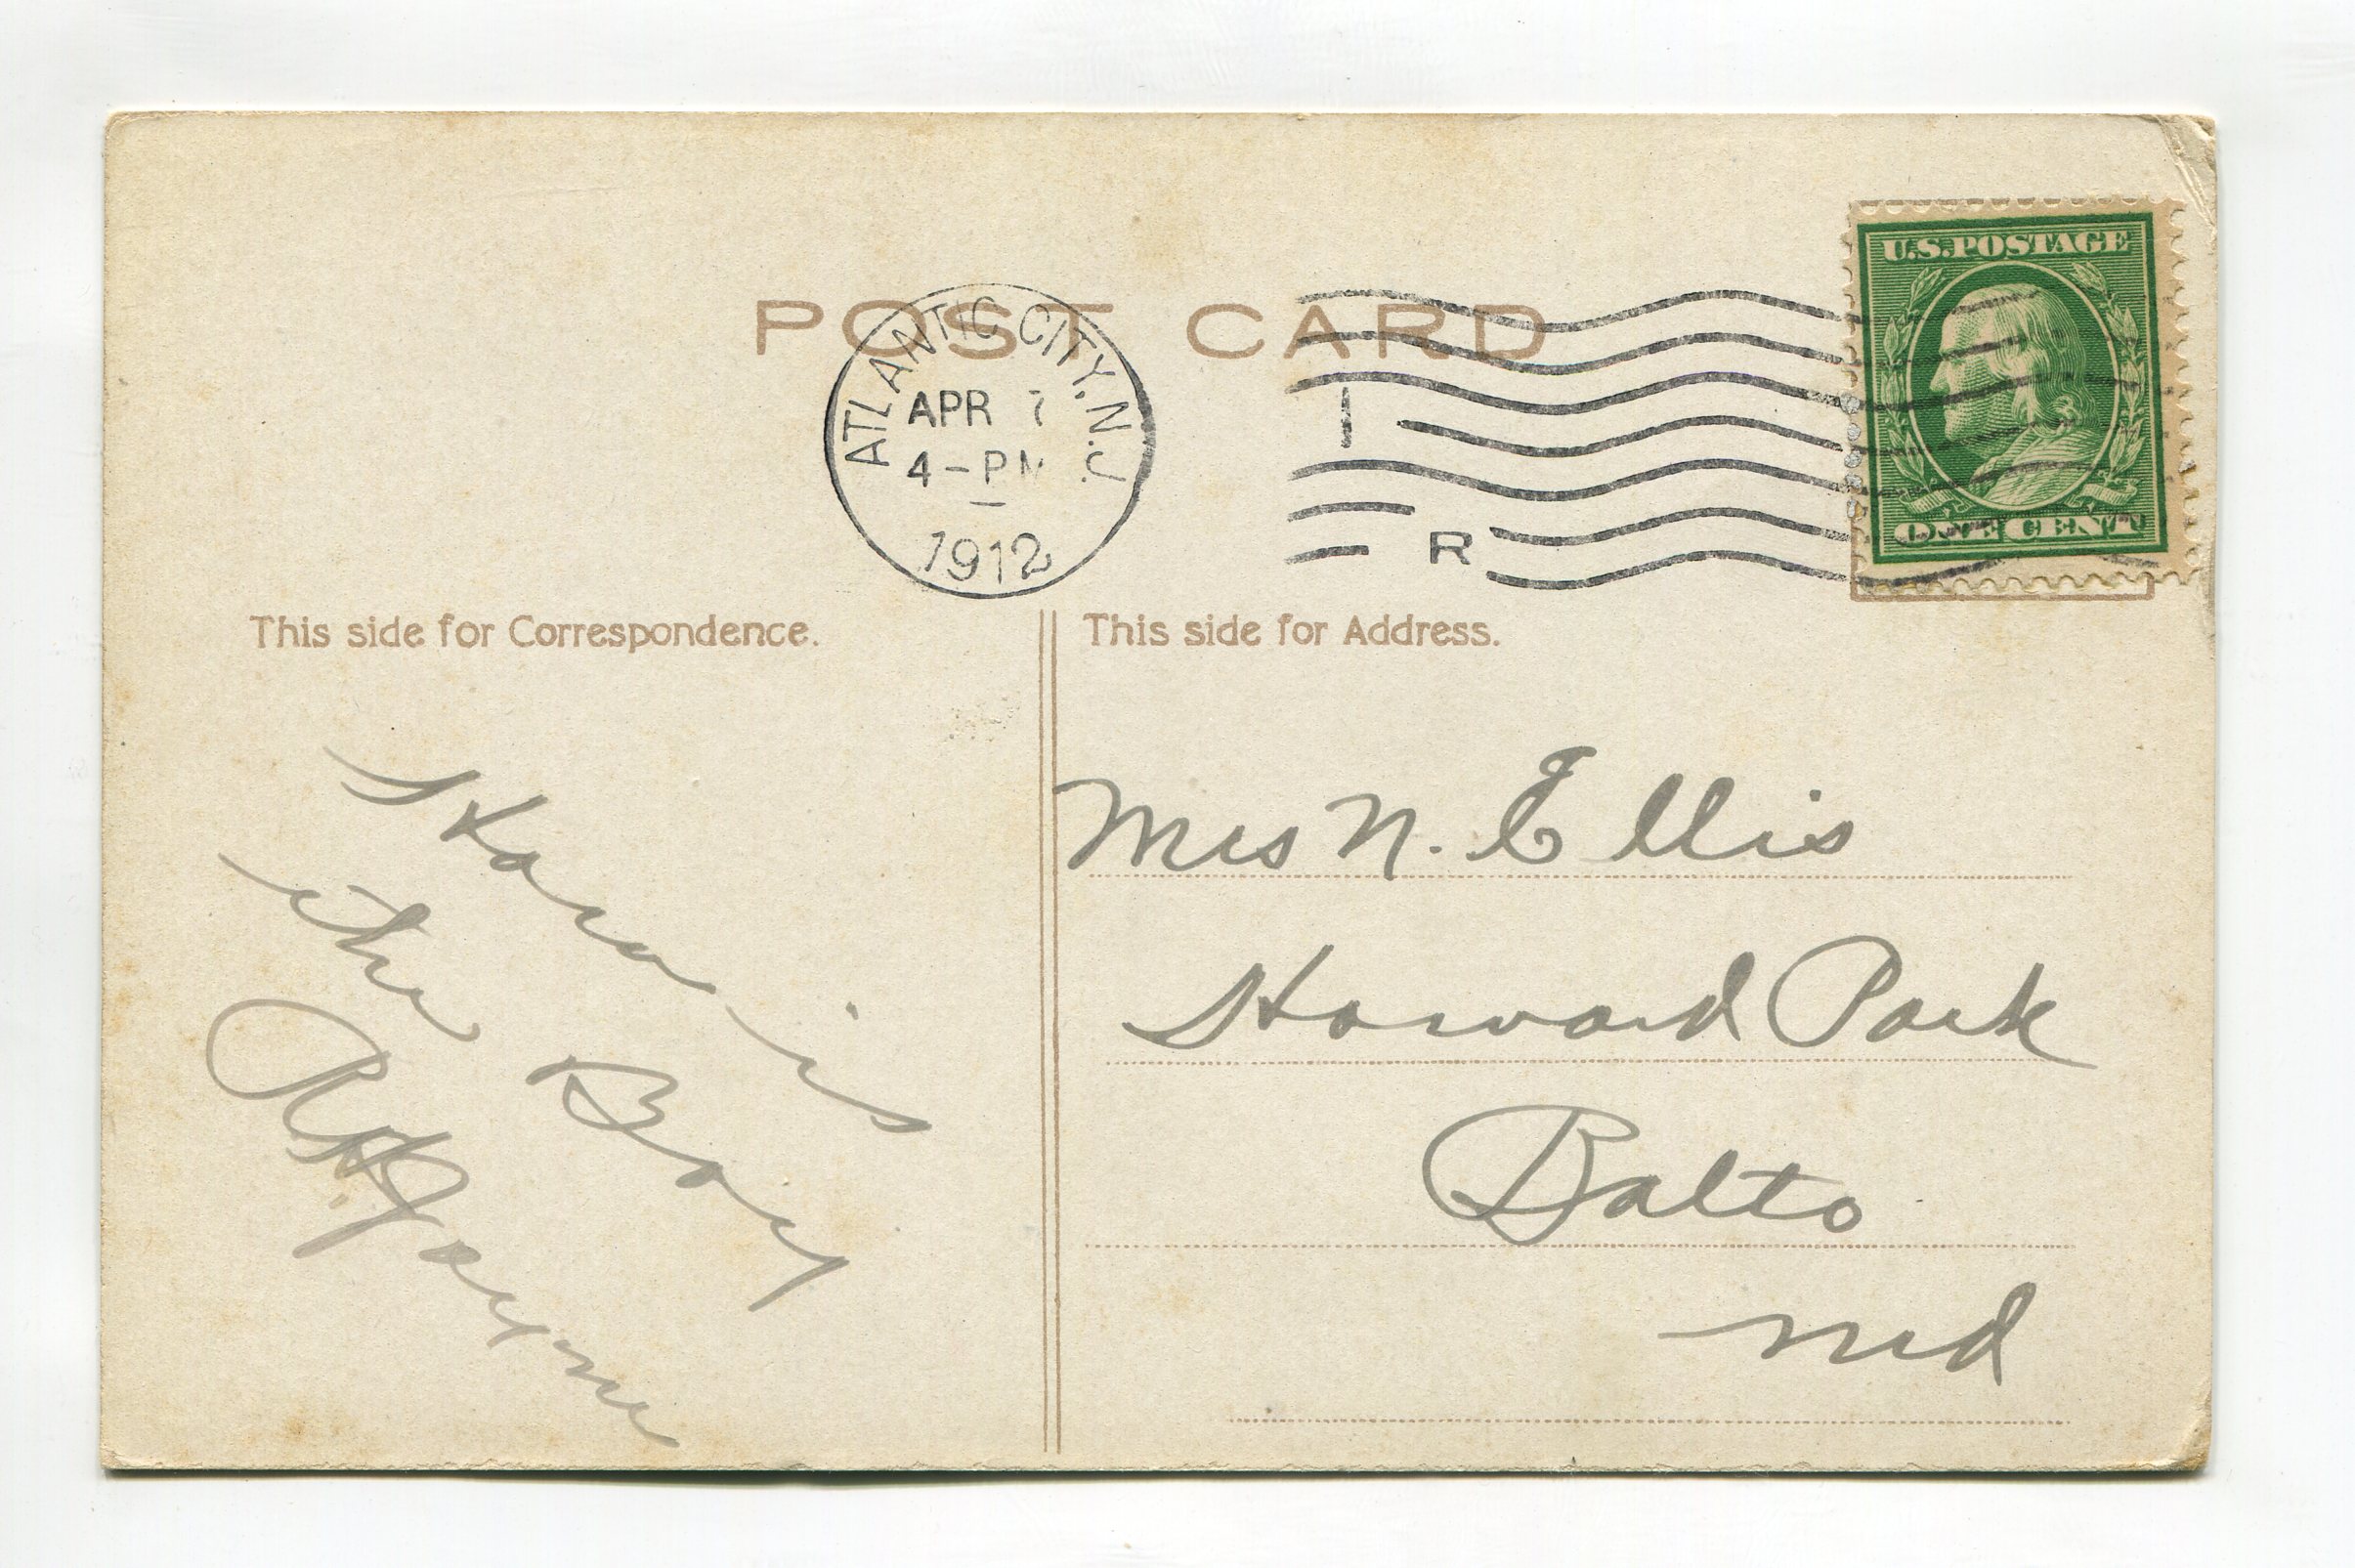 POST CARD
ATLANTIC CITY, N.J.
APR 7
4-PM
1912
I
R
U.S. POSTAGE
This side for Correspondence.
How is
the Boy
This side for Address.
Mrs N. Ellis
Howard Park
Balto
Md